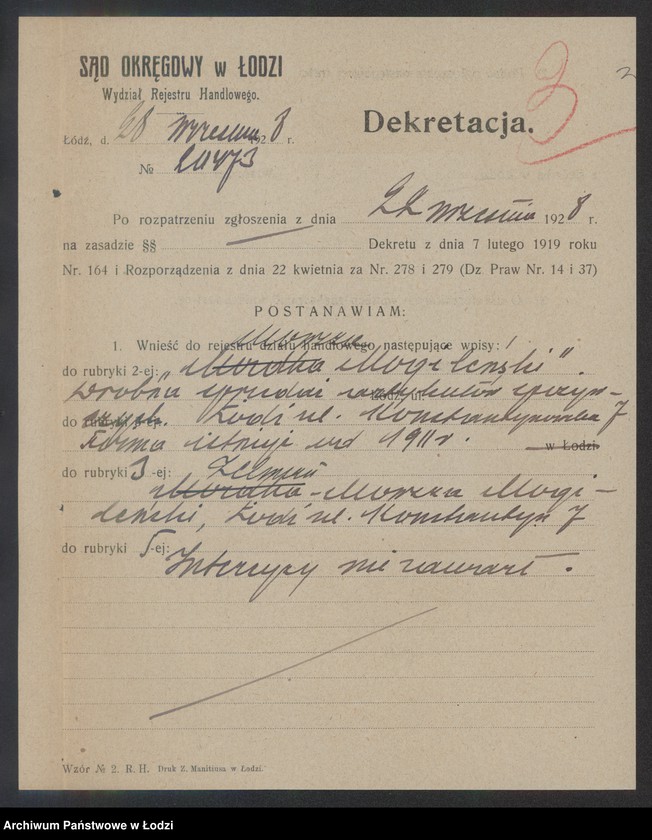 SĄD OKRĘGOWY w ŁODZI
Wydział Rejestru Handlowego.
Łódź, d. 28 września 1928 r.
№ 20473
Dekretacja.
3
2
Po rozpatrzeniu zgłoszenia z dnia 22 września 1928 r.
na zasadzie §§ Dekretu z dnia 7 lutego 1919 roku
Nr. 164 i Rozporządzenia z dnia 22 kwietnia za Nr. 278 i 279 (Dz Praw Nr. 14 i 37)
POSTANAWIAM:
1. Wnieść do rejestru działu handlowego następujące wpisy:
do rubryki 2-ej: „ Mogileński".
Drobna sprzedaż artykułów spożyw-
czych. Łódź ul. Konstantynowska 7
Firma istnieje od 1911 r. w Łodzi
do rubryki 3-ej:
Mogi-
leński, Łódź ul. Konstantyn. 7
do rubryki 5-ej:
Intercyzy nie zawarł.
Wzór № 2. R. H. Druk Z. Manitiusa w Łodzi.
Archiwum Państwowe w Łodzi